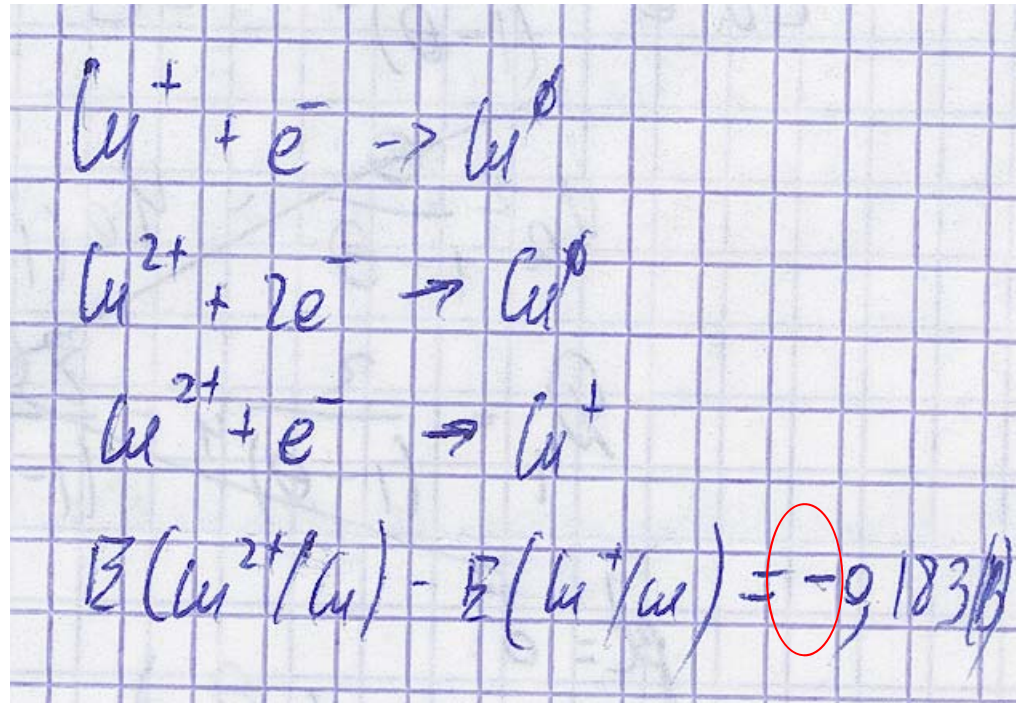 Cu⁺ + e⁻ -> Cu⁰
Cu²⁺ + 2e⁻ → Cu⁰
Cu²⁺ + e⁻ → Cu⁺
E(Cu²⁺/Cu) - E(Cu⁺/Cu) = -0,183(В)